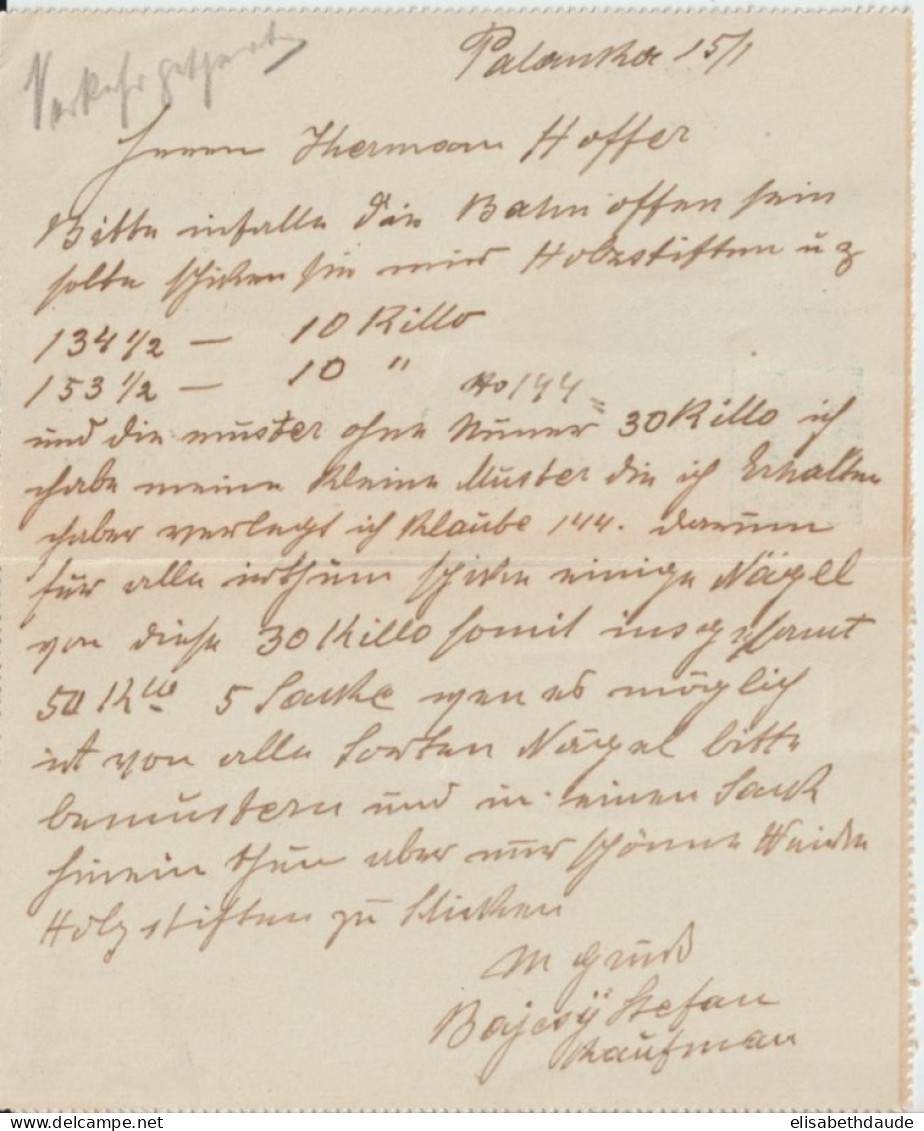 Verkehr gesperrt
Palanka 15/1
Herrn Hermann Hoffer
Bitte infalle die Bahn offen sein
solte schiken sie mir Holzstiften u z
134 1/2 — 10 Killo
153 1/2 — 10 "
No 144 =
und die muster ohne Numer 30 Killo ich
habe meine kleine Muster die ich Erhalten
haber verlegt ich klaube 144. darum
für alle irthum schike einige Nägel
von diese 30 Killo somit insgesamt
50 Kllo 5 Sacke wen es möglich
ist von alle Sorten Nägel bitte
bemustern und in einen Sack
hinein thun aber nur schöne Weiche
Holzstiften zu Schicken
M gruß
Bajcsy Stefan
Kaufman
www.delcampe.net
elisabethdaude